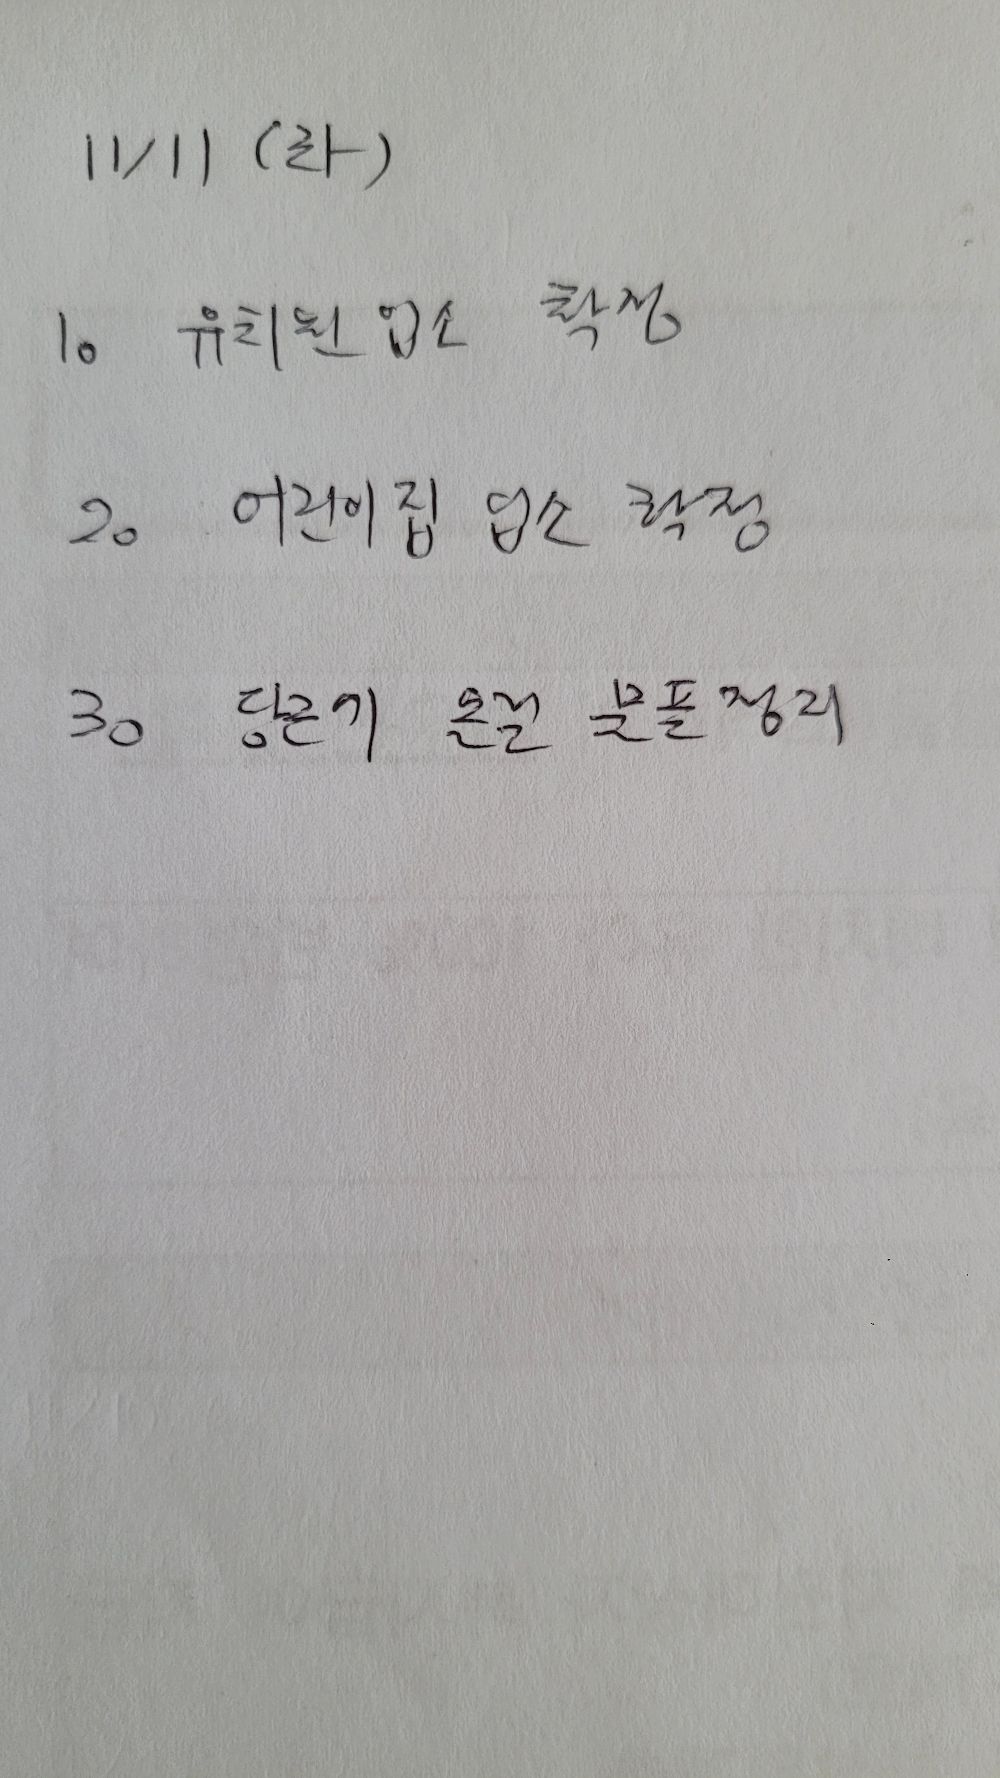 11/11 (화)
1. 유치원 업소 확정
2. 어린이집 업소 확정
3. 당근기 물품정리